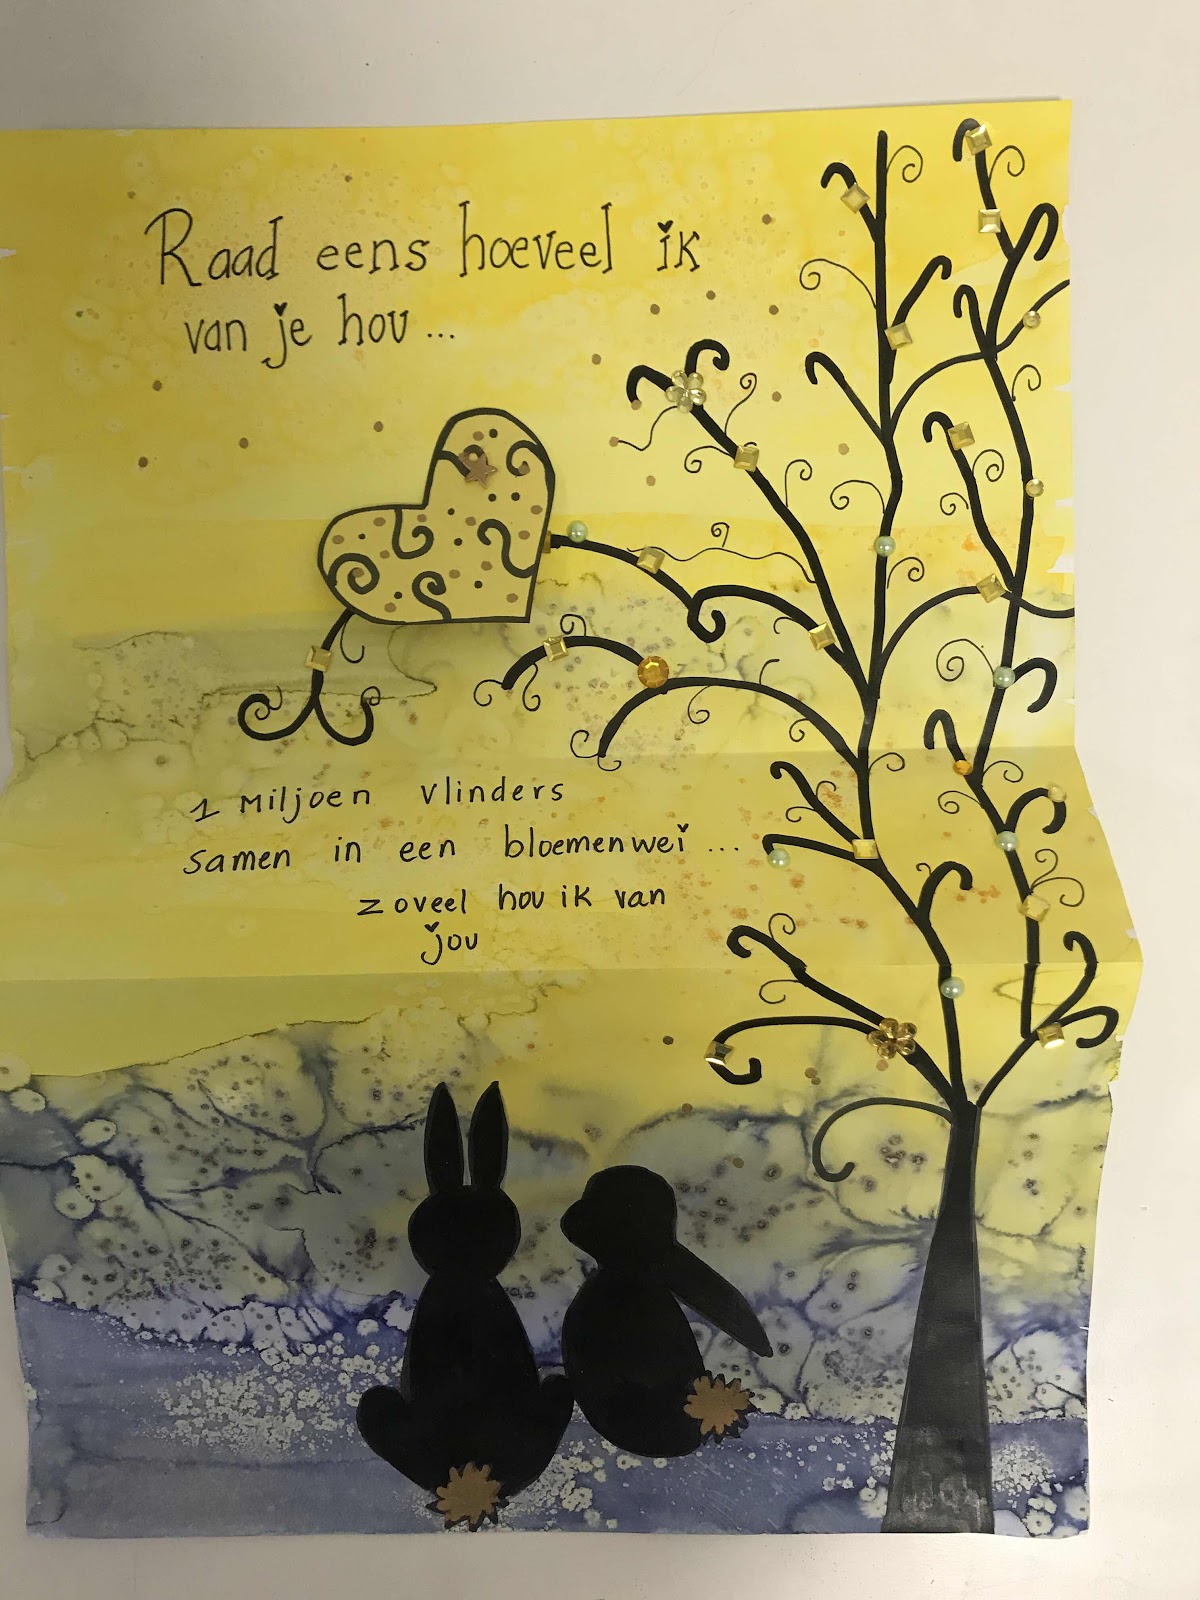 Raad eens hoeveel ik
van je hou...
1 Miljoen vlinders
samen in een bloemenwei...
zoveel hou ik van
jou